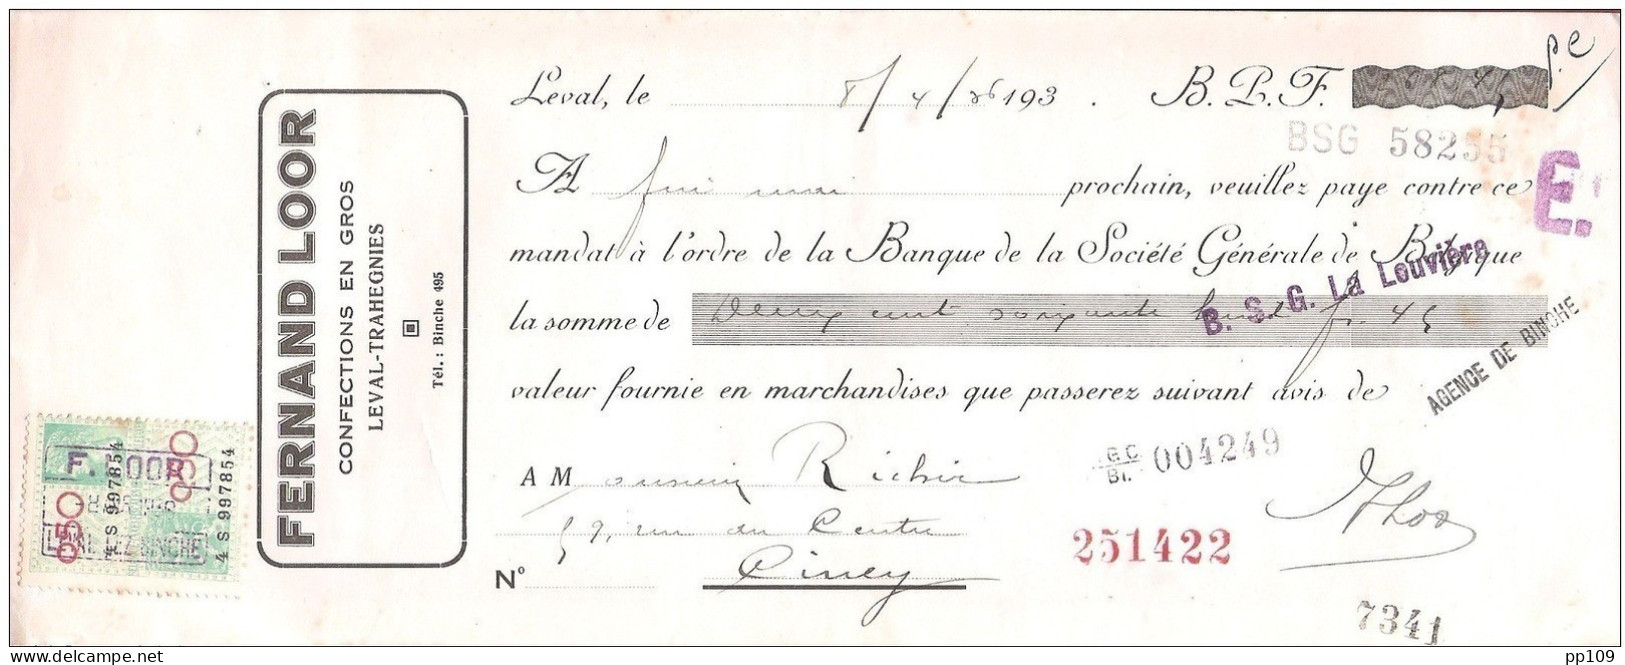 FERNAND LOOR
CONFECTIONS EN GROS
LEVAL-TRAHEGNIES
Tél. : Binche 495
Leval, le 8/4/36 193 . B. P. F. 268 45
p.c
BSG 58255
E.
A fin mai prochain, veuillez payer contre ce
mandat à l'ordre de la Banque de la Société Générale de Belgique
la somme de Deux cent soixante huit fr. 45
B. S. G. La Louvière
AGENCE DE BINCHE
valeur fournie en marchandises que passerez suivant avis de
A Monsieur Richir
59, rue du Centre
Ciney
N°
G C
Bi. 004249
251422
7341
F. LOOR
4 S 997854
4 S 997854
pp109